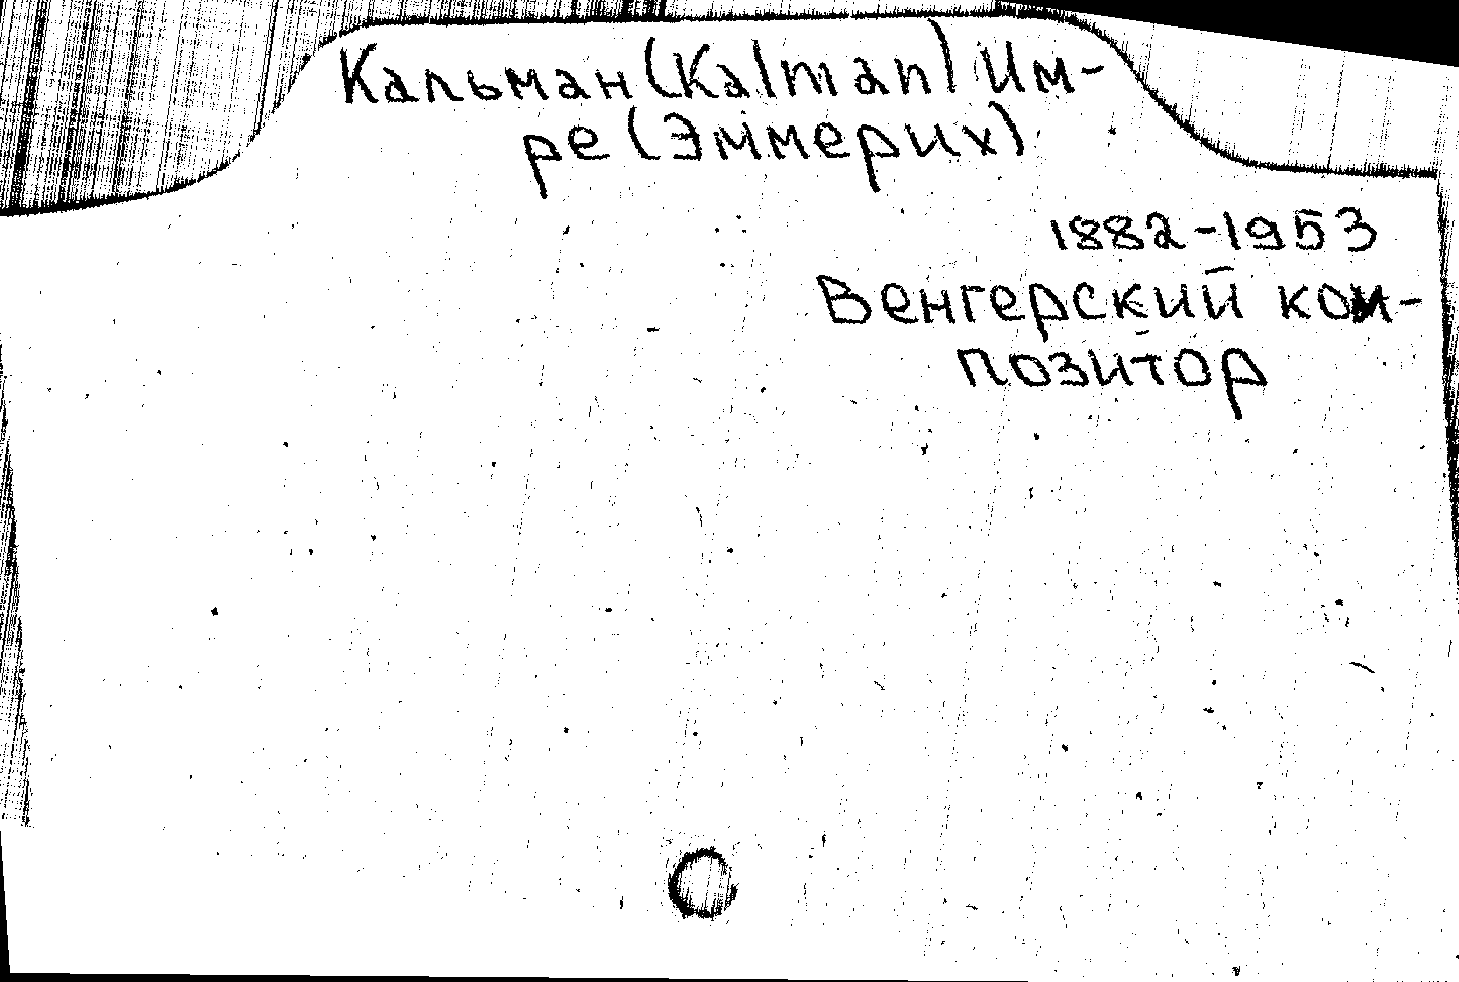 Кальман (Kalman) Им-
ре (Эммерих)
1882-1953
Венгерский ком-
позитор